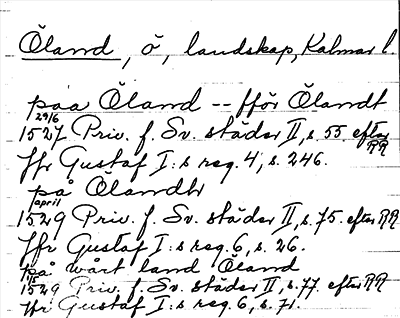 Öland, ö, landskap, Kalmar l.
paa Öland -- fför Ölandt
29/6
1527 Priv. f. Sv. städer II, s. 55 efter RR
Jfr Gustaf I:s reg. 4, s. 246.
på Ölandhr
april
1529 Priv. f. Sv. städer II, s. 75 efter RR
Jfr Gustaf I:s reg. 6, s. 26.
på wårt land Öland
1529 Priv. f. Sv. städer II, s. 77 efter RR
Jfr Gustaf I:s reg. 6, s. 71.